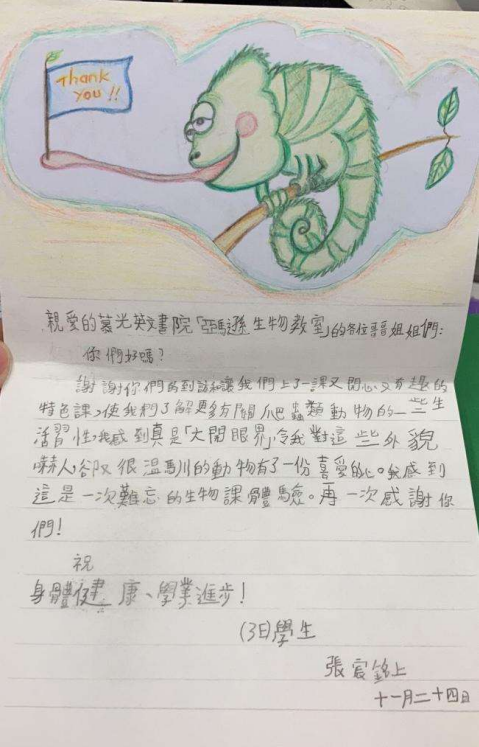 Thank
you!!
親愛的慕光英文書院「亞馬遜生物教室」的各位哥哥姐姐們:
你們好嗎?
謝謝你們的到訪和讓我們上了一課又開心又有趣的
特色課,使我們了解更多有關爬蟲類動物的一些生
活習性,我感到真是「大開眼界」,令我對這些外貌
嚇人,卻又很溫馴的動物有了一份喜愛的心。我感到
這是一次難忘的生物課體驗。再一次感謝你
們!
祝
身體健康、學業進步!
(3E)學生
張宸銘上
十一月二十四日